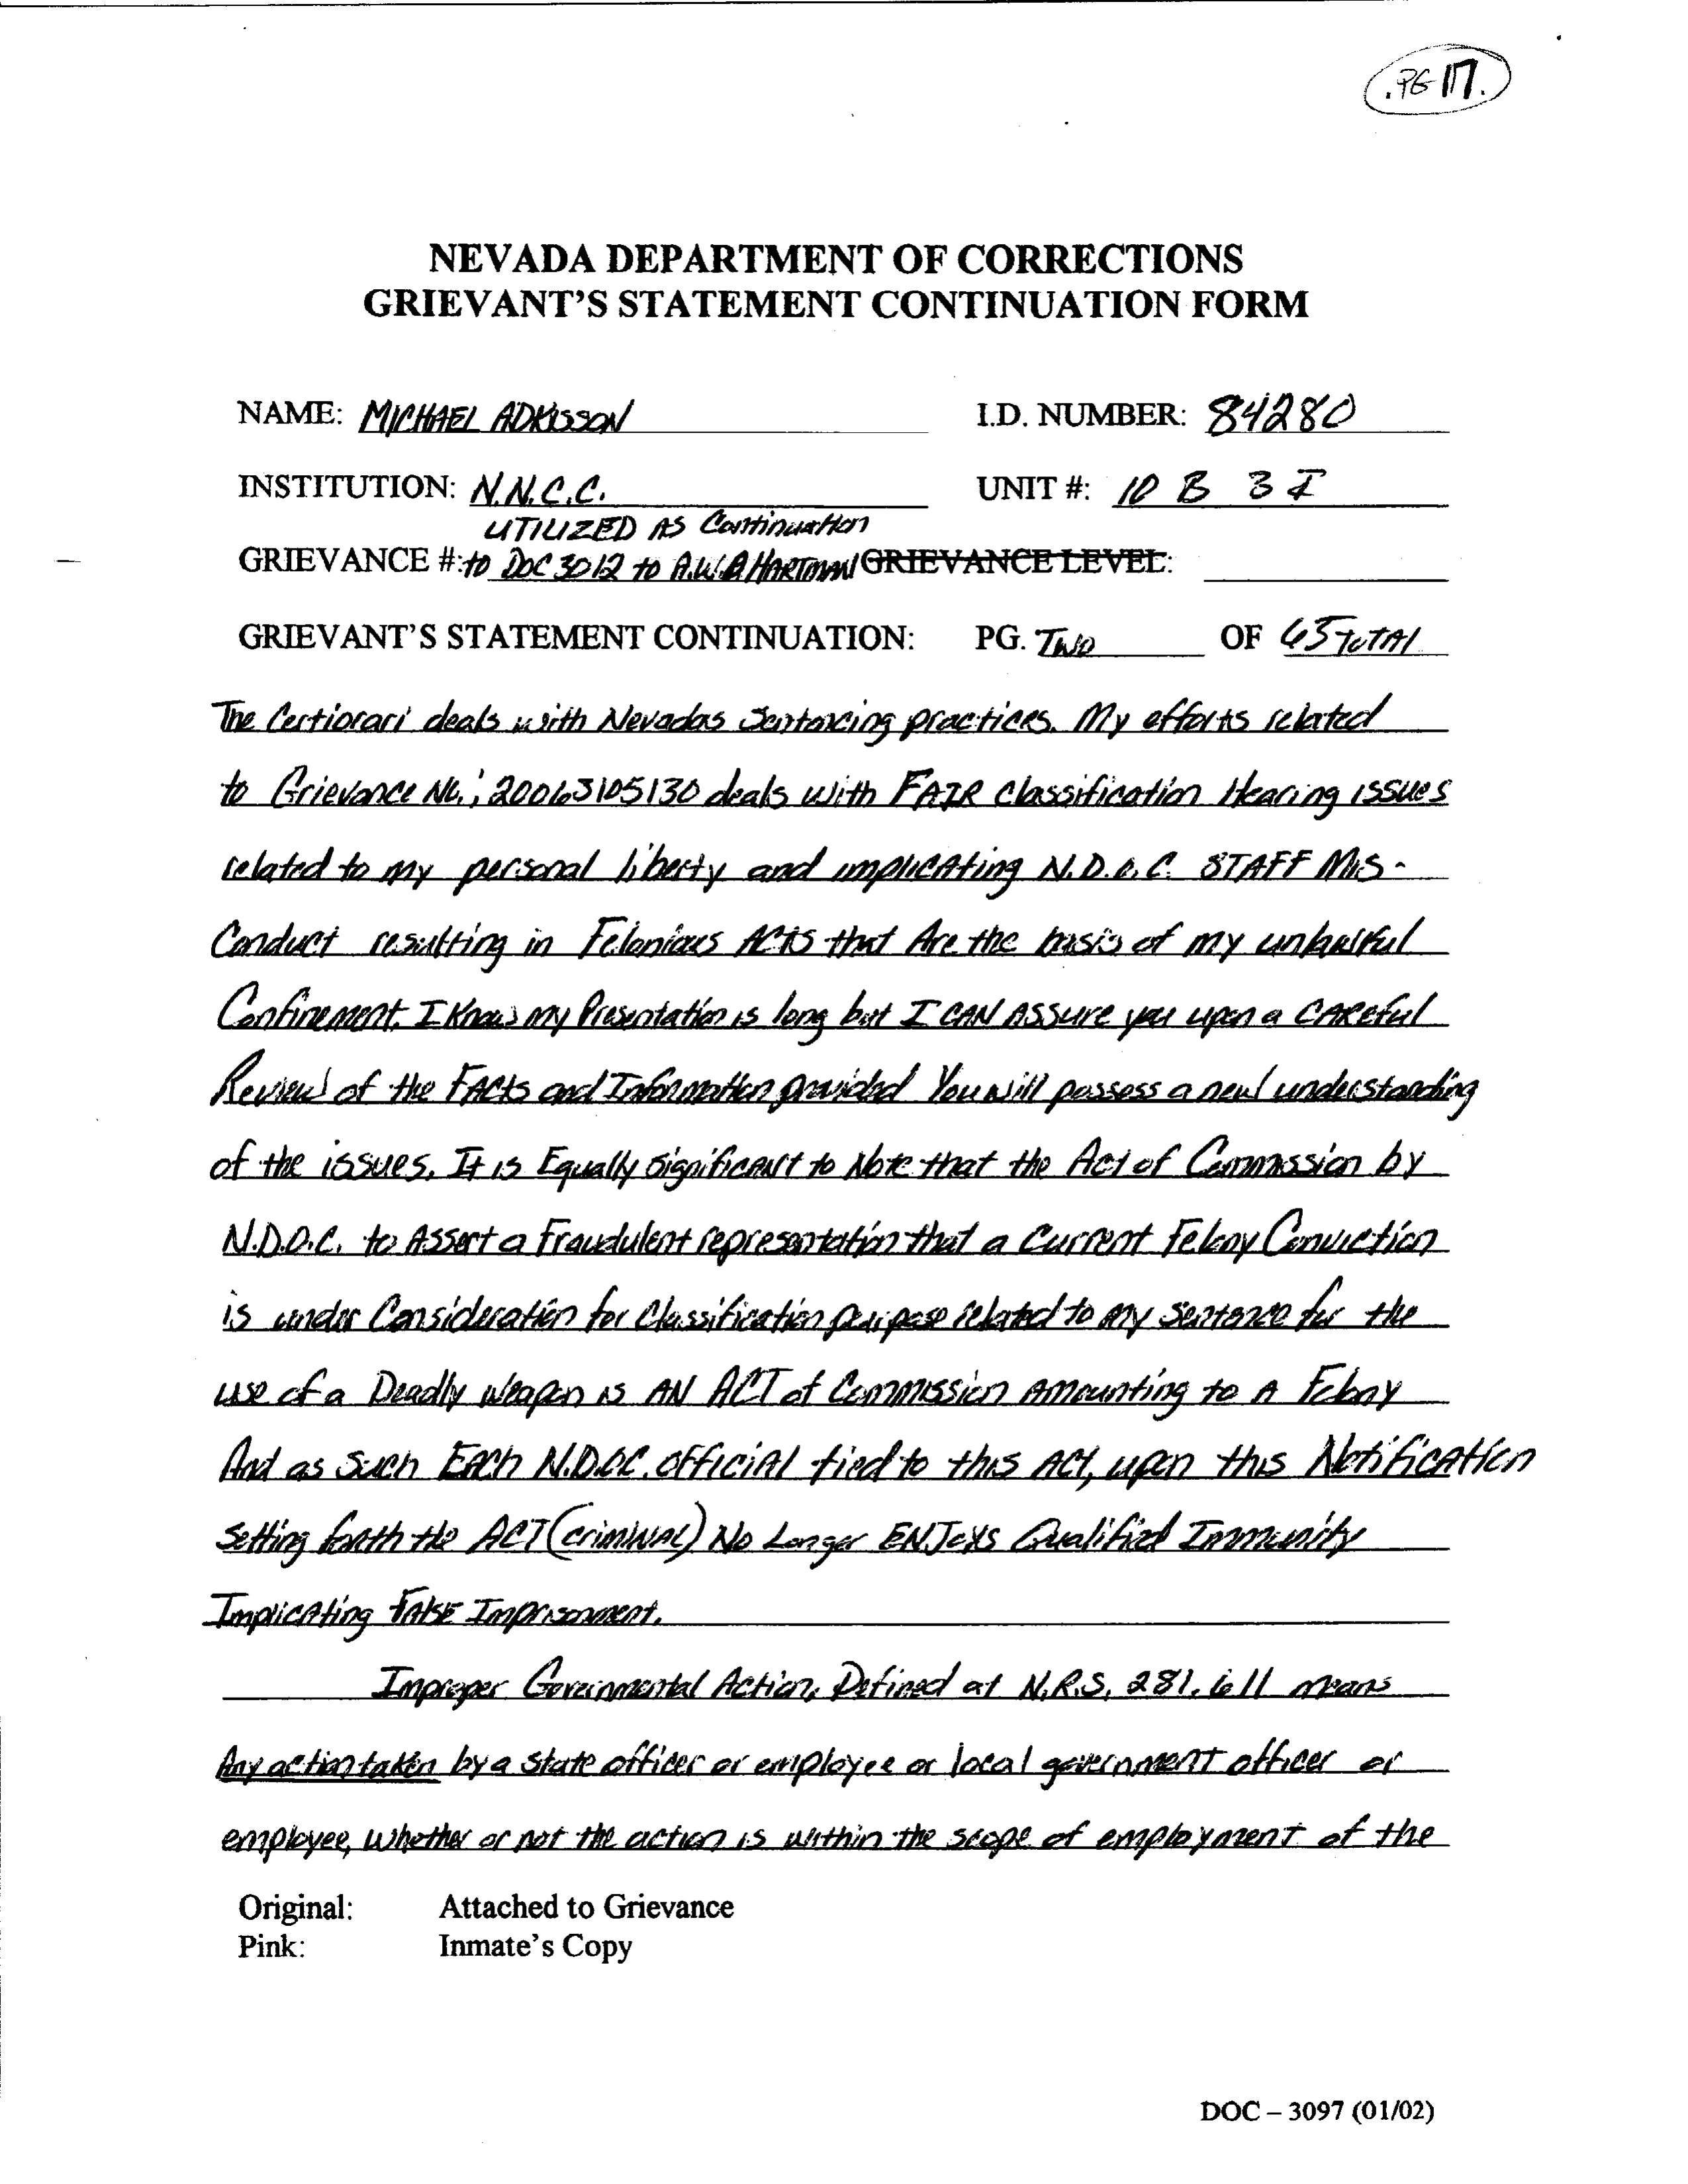 PG 17.
NEVADA DEPARTMENT OF CORRECTIONS
GRIEVANT'S STATEMENT CONTINUATION FORM
NAME: MICHAEL ADKISSON I.D. NUMBER: 84280
INSTITUTION: N.N.C.C. UNIT #: 10 B 3
UTILIZED AS Continuation
GRIEVANCE #: to DOC 3012 to A.W. HARTMAN GRIEVANCE LEVEL:
GRIEVANT'S STATEMENT CONTINUATION: PG. TWO OF 65 TOTAL
The Certiorari deals with Nevadas Sentencing practices. My efforts related
to Grievance No.; 20063105130 deals with FAIR Classification Hearing issues
related to my personal liberty and implicating N.D.O.C. STAFF Mis-
Conduct resulting in Felonious ACTS that Are the basis of my unlawful
Confinement. I Know my Presentation is long but I CAN ASSURE you upon a CAREful
Review of the FACTS and Information provided You will possess a new understanding
of the issues. It is Equally significant to Note that the Act of Commission by
N.D.O.C. to Assert a Fraudulent representation that a Current Felony Conviction
is under Consideration for Classification purpose related to my sentence for the
use of a Deadly Weapon is AN ACT of Commission Amounting to A Felony
And as Such EACh N.D.O.C. OfficiAl tied to this ACt, upon this NotificAtion
Setting forth the ACT (criminAl) No Longer ENJoys Qualified Immunity
ImplicAting FAlSE Imprisonment.
Improper Governmental Action, Defined at N.R.S. 281.611 means
Any action taken by a state officer or employee or local government officer or
employee, whether or not the action is within the scope of employment of the
Original: Attached to Grievance
Pink: Inmate's Copy
DOC – 3097 (01/02)